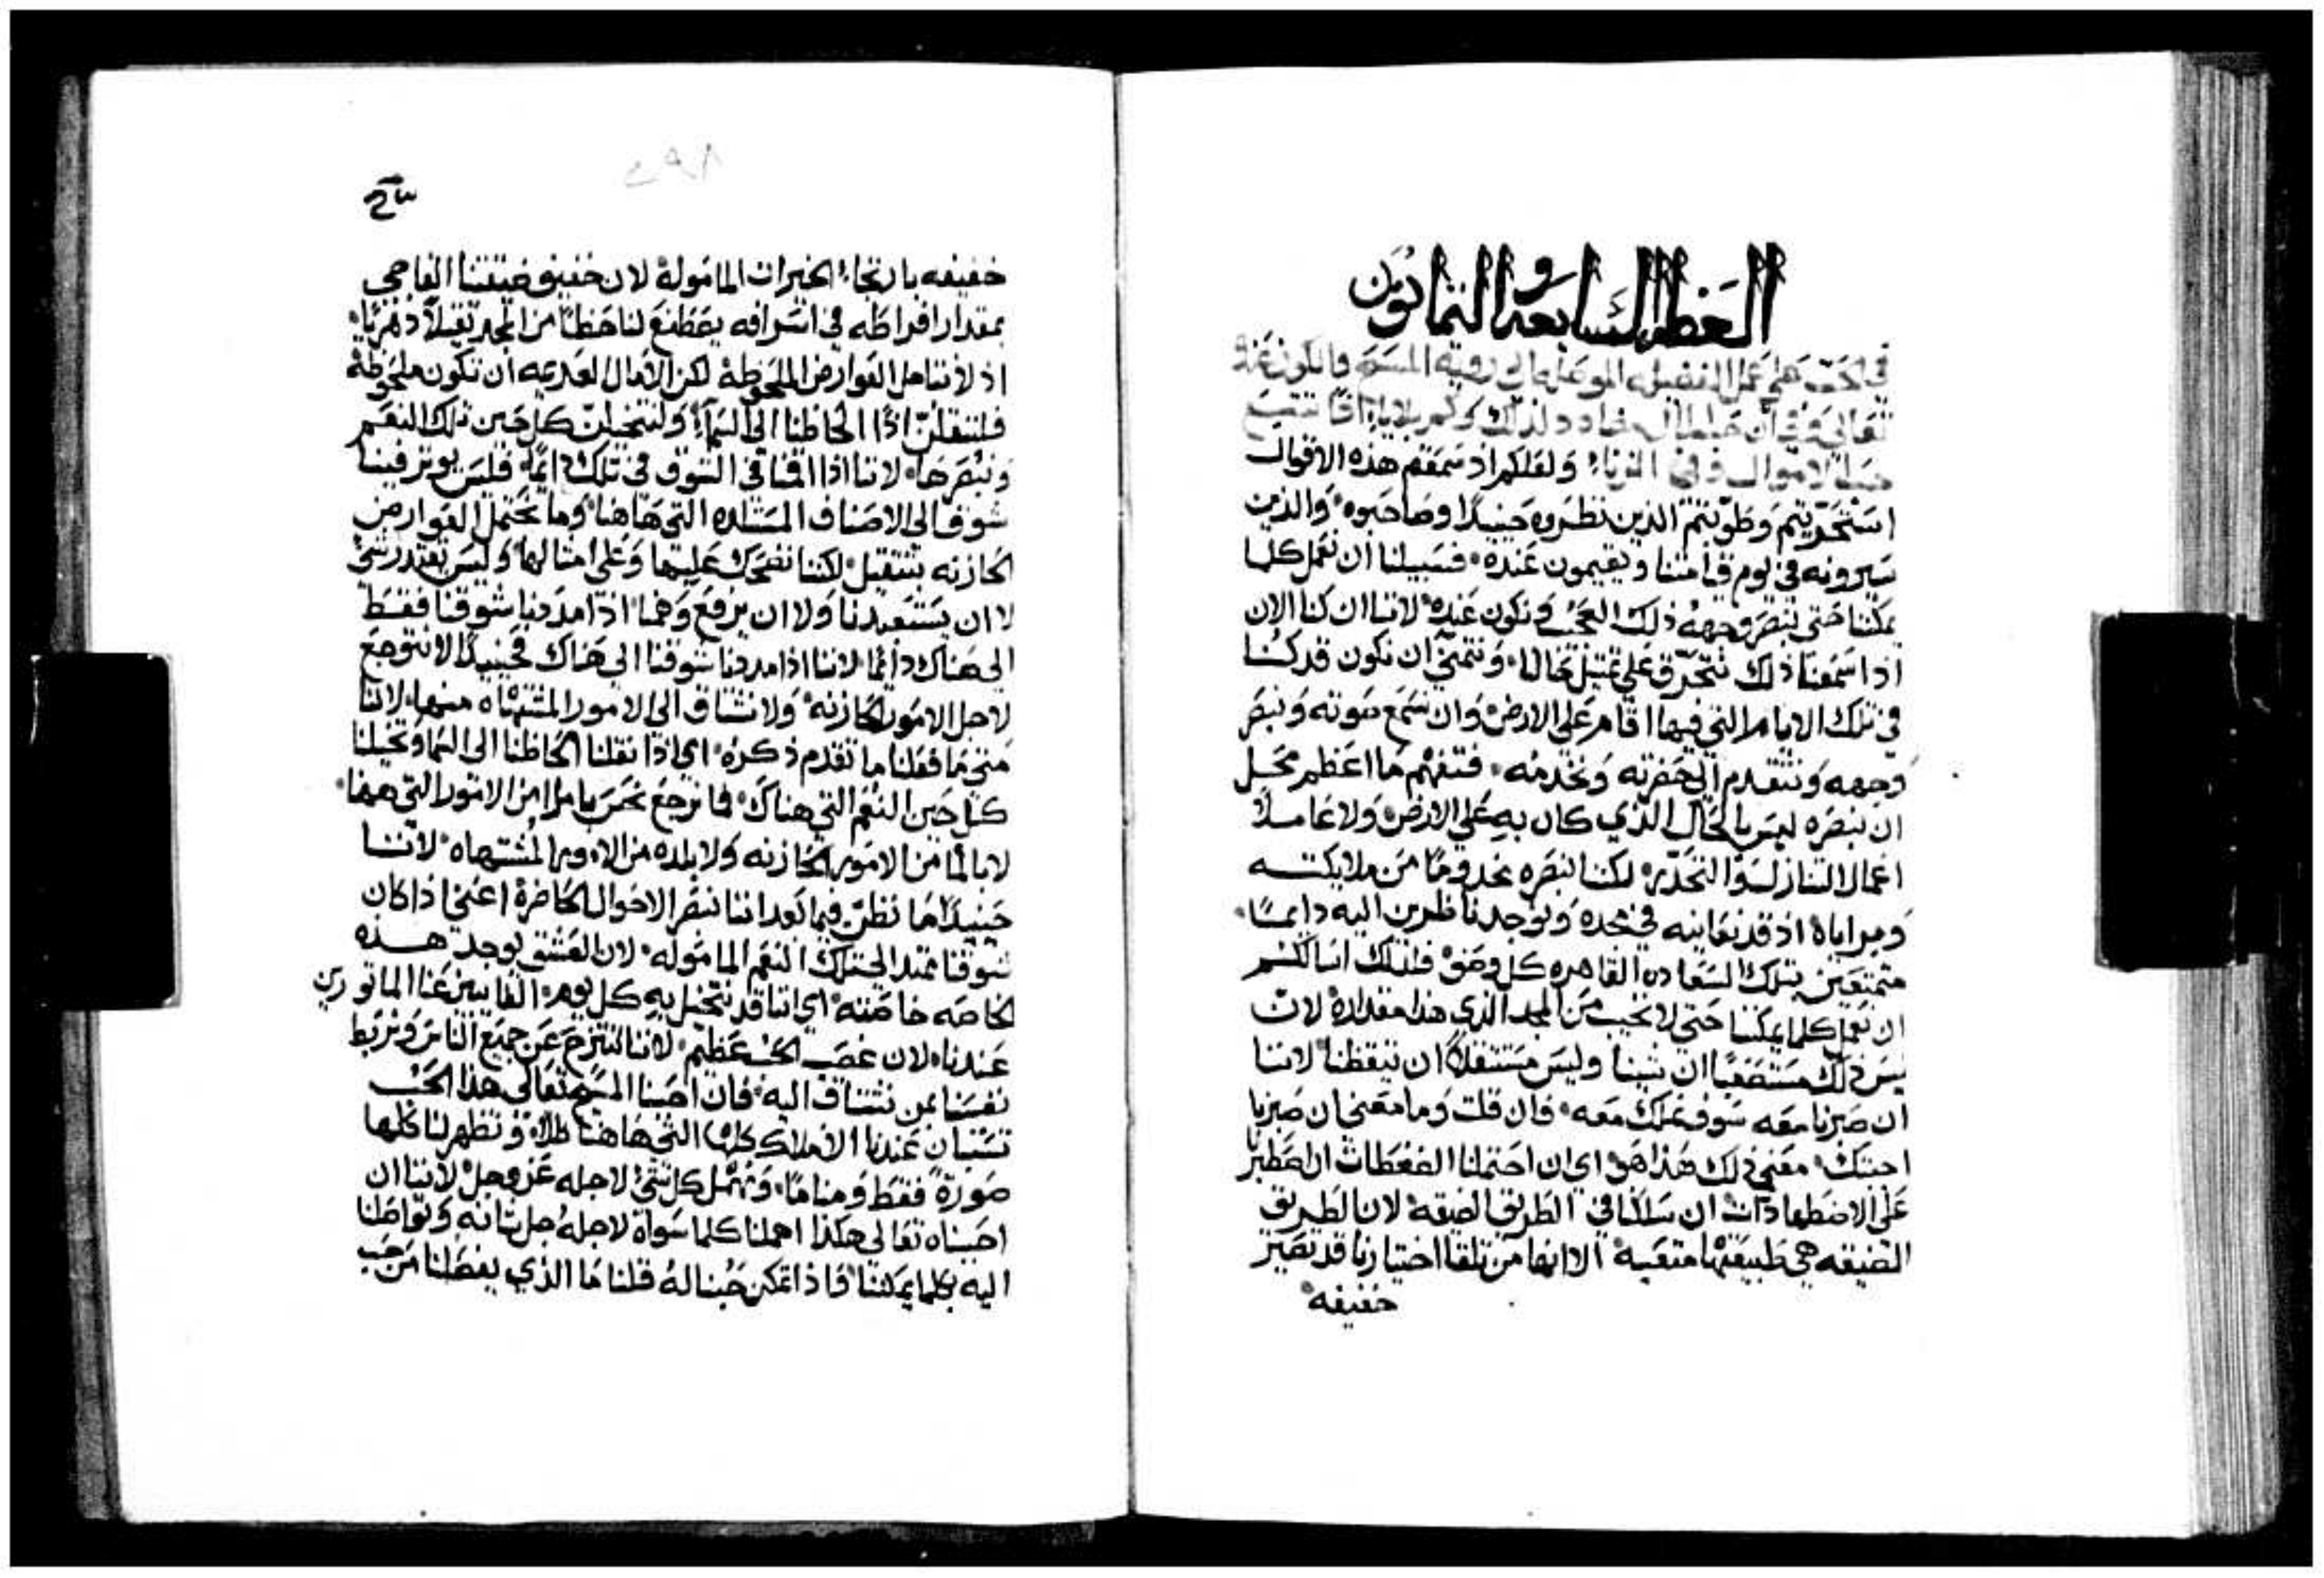 العظه السابعه والثمانون
في الحث على عمل الفضيله الموصله الي رويه المسيح والكون عنده
تعالي وفي أن
حب الاموال وفي الزناء ولعلكم اذ سمعتم هذه الاقوال
استحريتم وطوبتم الذين نظروه حينيدًا وصاحبوه والذين
سيرونه في يوم قيامتنا ويقيمون عنده فسبيلنا ان نعمل كلما
يمكننا حتي نبصر وجهه ذلك العجيب ونكون عنده لاننا ان كنا الان
اذا سمعنا ذلك نتحرق علي تمثيل حالنا ونتمني ان نكون قد كنا
في تلك الايام التي فيها اقام علي الارض وان نسمع صوته ونبصر
وجهه ونتقدم الي حضرته ونخدمه فتفهم ما اعظم محل
ان نبصره ليس بالحال الذي كان به علي الارض ولا عاملاً
اعمالا لكننا نبصره مخدومًا من ملايكته
ومراياه اذ قد نعاينه في مجده ونوجد ناظرين اليه دايمًا
متمتعين بتلك السعاده القاهره كل وصف فلذلك اسالكم
ان نعمل كلما يمكننا حتي لا نخيب من المجد الذي هذا مقداره لان
ليس ذلك مستصعبًا ان شينا وليس مستثقلاً ان تيقظنا لاننا
ان صبرنا معه سوف نملك معه فان قلت وما معني ان صبرنا
اجبتك معني ذلك هذا هو اي ان احتملنا الضغطات ان اصطبرنا
علي الاضطهادات ان سلكنا في الطريق الضيقه لان الطريق
الضيقه هي طبيعتها متعبه الا انها من تلقا اختيارنا قد تصير
خفيفه
٢٩٨
خفيفه بارتجاء الخيرات المامولة لان خفيف ضيقتنا الفاجي
بمقدار افراطه في اشرافه يصطنع لنا حظًا من المجد ثقيلاً دهريًا
اذ لا نتامل العوارض الملحوظة لكن الامال العديمه ان تكون ملحوظة
فلننقلن اذًا الحاظنا الي السماء ولنتخيلن كل حين تلك النعم
ونبصرها لاننا اذا اقمنا في الشوق في تلك دايمًا فليس يوثر فينا
شوق الي الاصناف المستلده التي هاهنا وما نحتمل العوارض
الحازنه بتثقيل لكننا نضحك عليها وعلي امثالها وليس يقتدر شي
لا ان يستعبدنا ولا ان يرفع وهمنا اذا مددنا شوقنا فقط
الي هناك دايمًا لاننا اذا مددنا شوقنا الي هناك فحينيدًا لا نتوجع
لاجل الامور الحازنه ولا نشتاق الي الامور المشتهاه منها لاننا
متي ما فعلنا ما تقدم ذكره اي اذا نقلنا الحاظنا الي السماء وتخيلنا
كل حين النعم التي هناك فما نرجع نحس بامرا من الامور التي ههنا
لا بالمًا من الامور الحازنه ولا بلده من الامور المشتهاه لاننا
حينيدًا ما نظن فيما بعد اننا نبصر الاحوال الحاضرة اعني اذا كان
شوقنا ممتد الي تلك النعم المامولة لان العشق يوجد هذه
الخاصه خاصته اي اننا قد نتخيل به كل يوم الغايبين عنا الماثورين
عندنا لان غصب الحب عظيم لاننا لننتزح عن جميع الناس ونربط
نفسنا بمن نشتاق اليه فان احببنا المسيح تعالي هذا الحب
تستبان عندنا الاملاك كلها التي هاهنا ظلاً وتظهر لنا كلها
صورةً فقط ومنامًا ونهمل كل شي لاجله عز وجل لاننا ان
احببناه تعالي هكذا اهملنا كلما سواه لاجله جل شانه وتواصلنا
اليه بكلما يمكننا فاذا تمكن حبنا له قلنا ما الذي يفصلنا من حب